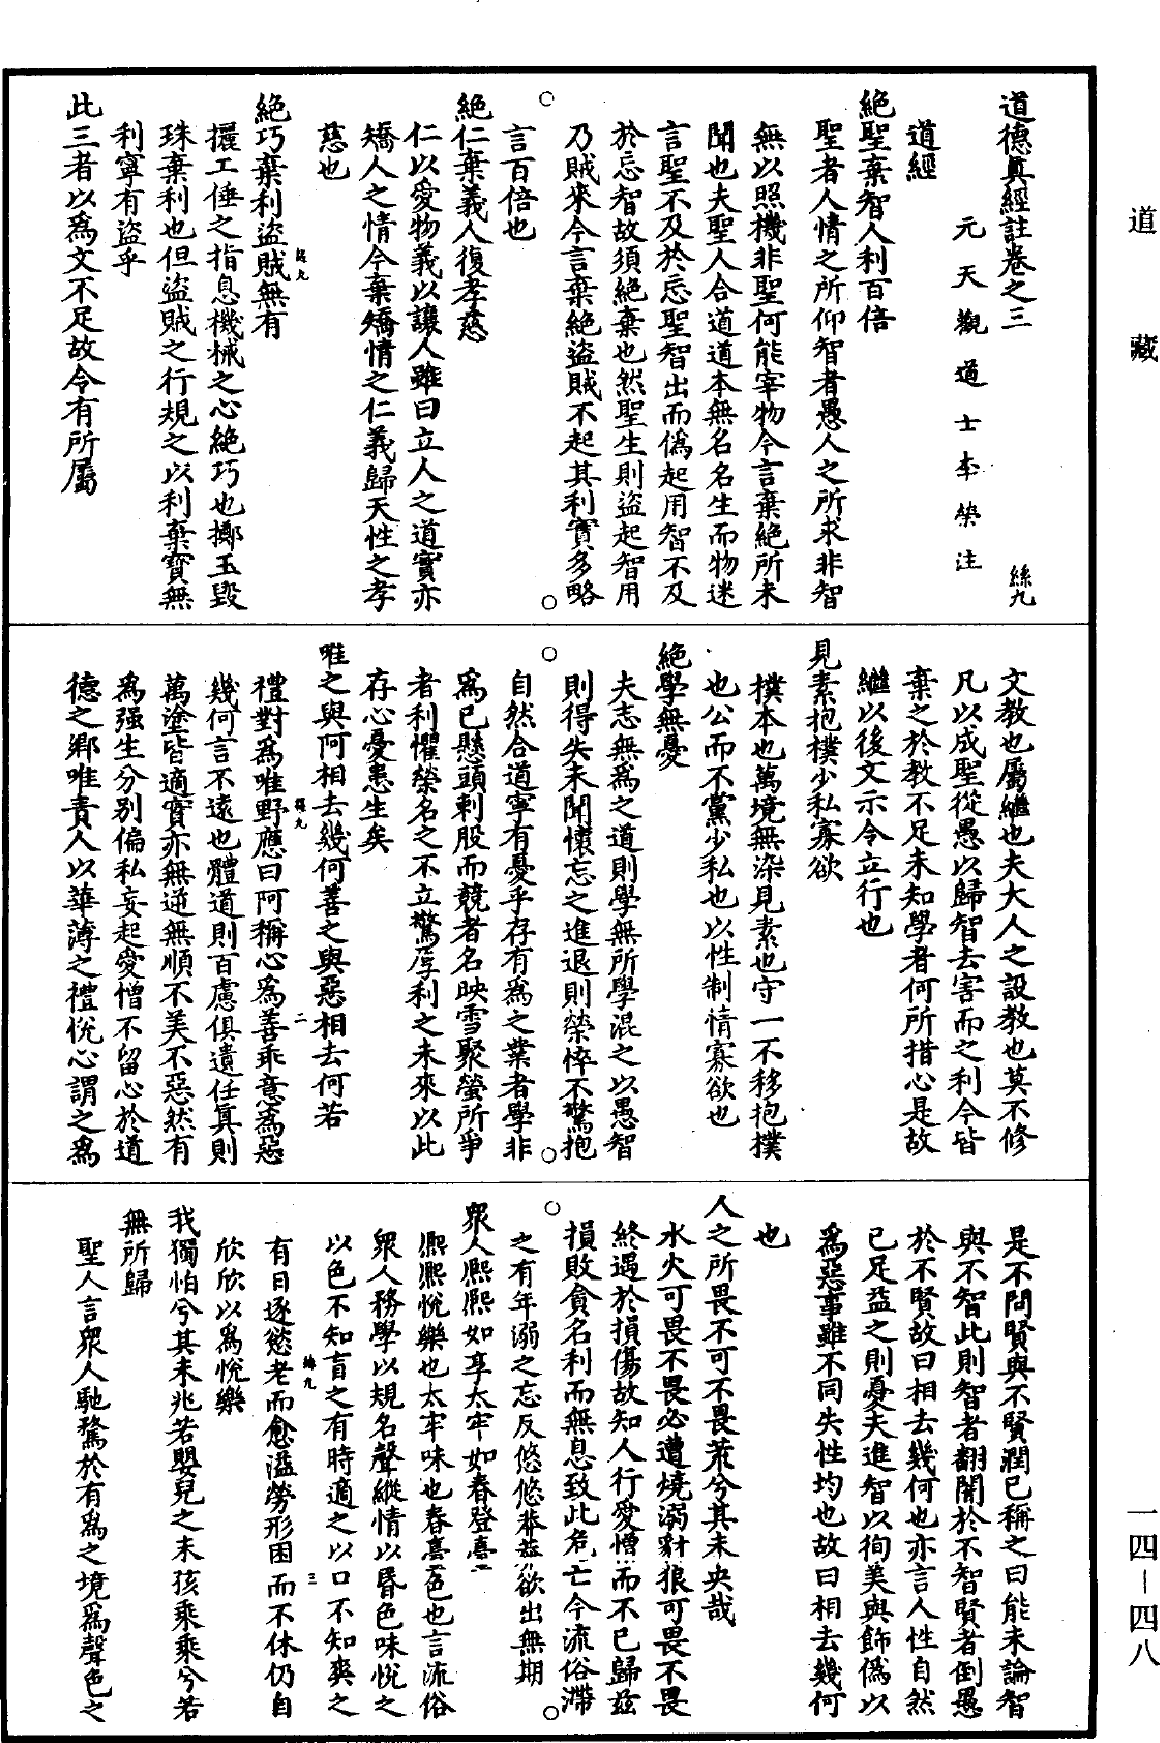 道藏
一四—四八
道德眞經註卷之三
絲九
元天觀道士李榮注
道經
絕聖棄智人利百倍
聖者人情之所仰智者愚人之所求非智
無以照機非聖何能宰物今言棄絕所未
聞也夫聖人合道道本無名名生而物迷
言聖不及於忘聖智出而僞起用智不及
於忘智故須絕棄也然聖生則盜起智用
乃賊來今言棄絕盜賊不起其利實多略
言百倍也
絕仁棄義人復孝慈
仁以愛物義以讓人雖曰立人之道實亦
矯人之情今棄矯情之仁義歸天性之孝
慈也
絕巧棄利盜賊無有
絲九
攦工倕之指息機械之心絕巧也擲玉毀
珠棄利也但盜賊之行規之以利棄寶無
利寧有盜乎
此三者以爲文不足故令有所屬
文教也屬繼也夫大人之設教也莫不修
凡以成聖從愚以歸智去害而之利今皆
棄之於教不足未知學者何所措心是故
繼以後文示令立行也
見素抱樸少私寡欲
樸本也萬境無染見素也守一不移抱樸
也公而不黨少私也以性制情寡欲也
絕學無憂
夫志無爲之道則學無所學混之以愚智
則得失未聞懷忘之進退則榮悴不驚抱
自然合道寧有憂乎存有爲之業者學非
爲己懸頭刺股而競者名映雪聚螢所爭
者利懼榮名之不立驚厚利之未來以此
存心憂患生矣
唯之與阿相去幾何善之與惡相去何若
禮對爲唯野應曰阿稱心爲善乖意爲惡
絲九
二
幾何言不遠也體道則百慮俱遺任眞則
萬塗皆適實亦無逆無順不美不惡然有
爲强生分別偏私妄起愛憎不留心於道
德之鄉唯責人以華薄之禮悅心謂之爲
是不問賢與不賢潤己稱之曰能未論智
與不智此則智者翻闇於不智賢者倒愚
於不賢故曰相去幾何也亦言人性自然
已足益之則憂夫進智以徇美與飾僞以
爲惡事雖不同失性均也故曰相去幾何
也
人之所畏不可不畏荒兮其未央哉
水火可畏不畏必遭燒溺豺狼可畏不畏
終遇於損傷故知人行愛憎而不已歸茲
損敗貪名利而無息致此危亡今流俗滯
之有年溺之忘反悠悠莽莽欲出無期
衆人熙熙如享太牢如春登臺
熙熙悅樂也太牢味也春臺色也言流俗
衆人務學以規名聲縱情以昏色味悅之
以色不知盲之有時適之以口不知爽之
有日逐慾老而愈溢勞形困而不休仍自
絲九
三
欣欣以爲悅樂
我獨怕兮其未兆若嬰兒之未孩乘乘兮若
無所歸
聖人言衆人馳騖於有爲之境爲聲色之